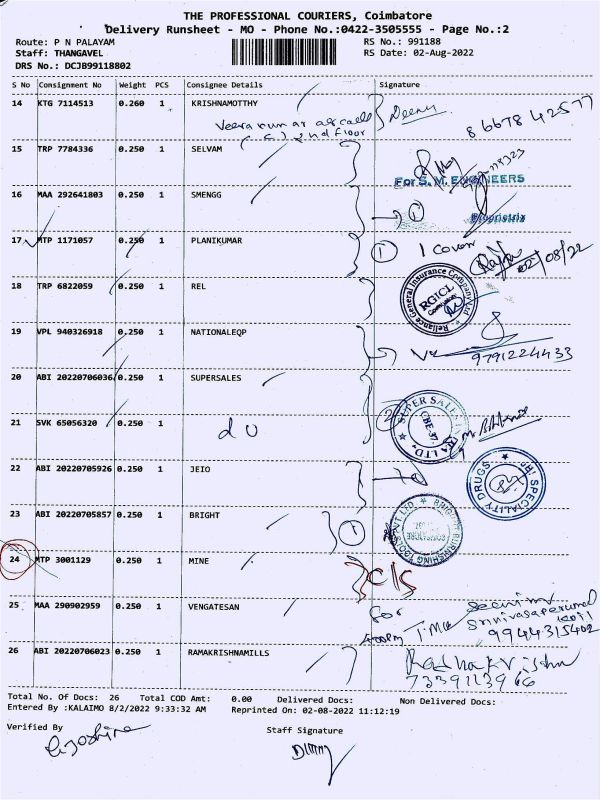 THE PROFESSIONAL COURIERS, Coimbatore
Delivery Runsheet - MO - Phone No.:0422-3505555 - Page No.:2
Route: P N PALAYAM
RS No.: 991188
Staff: THANGAVEL
RS Date: 02-Aug-2022
DRS No.: DCJB99118802
S No Consignment No Weight PCS Consignee Details Signature
14 KTG 7114513 0.260 1 KRISHNAMOTTHY
2nd floor
8667842577
15 TRP 7784336 0.250 1 SELVAM
For S. M. ENGINEERS
16 MAA 292641803 0.250 1 SMENGG
1
Proprietrix
17 MTP 1171057 0.250 1 PLANIKUMAR
1 1 cover
02/08/22
18 TRP 6822059 0.250 1 REL
Reliance General Insurance Company Ltd
RGICL
19 VPL 940326918 0.250 1 NATIONALEQP
9791224433
20 ABI 20220706036 0.250 1 SUPERSALES
2
SUPER SALES
CBE-37
21 SVK 65056320 0.250 1
do
22 ABI 20220705926 0.250 1 JEIO
SPECIALITY DRUGS
23 ABI 20220705857 0.250 1 BRIGHT
1
24 MTP 3001129 0.250 1 MINE
C/S
25 MAA 290902959 0.250 1 VENGATESAN
for
Srinivasaperumal
koil
9944315402
26 ABI 20220706023 0.250 1 RAMAKRISHNAMILLS
Radhakrishn
7339123966
Total No. Of Docs: 26 Total COD Amt: 0.00 Delivered Docs: Non Delivered Docs:
Entered By :KALAIMO 8/2/2022 9:33:32 AM Reprinted On: 02-08-2022 11:12:19
Verified By
Staff Signature